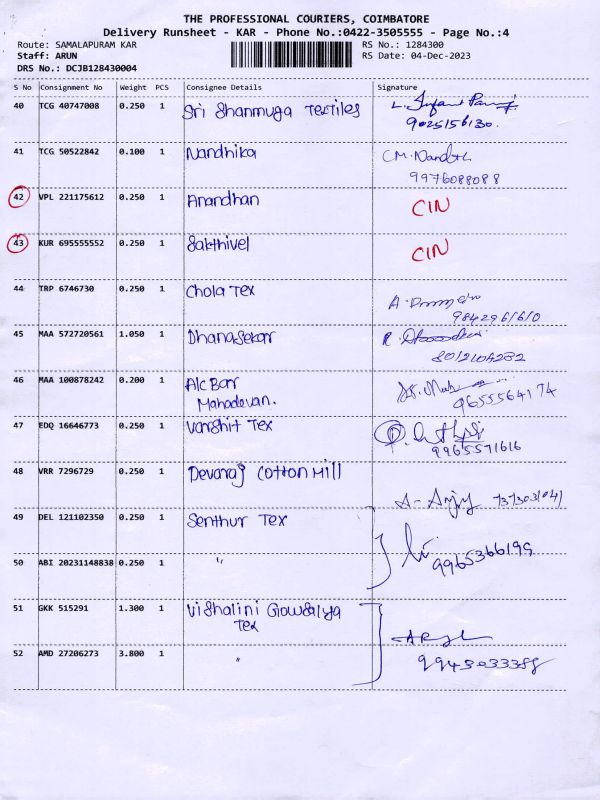 THE PROFESSIONAL COURIERS, COIMBATORE
Delivery Runsheet - KAR - Phone No.:0422-3505555 - Page No.:4
Route: SAMALAPURAM KAR RS No.: 1284300
Staff: ARUN RS Date: 04-Dec-2023
DRS No.: DCJB128430004
S No Consignment No Weight PCS Consignee Details Signature
40 TCG 40747008 0.250 1 Sri Shanmuga Textiles
9025156130.
41 TCG 50522842 0.100 1 Nandhika
9976088088
42 VPL 221175612 0.250 1 Anandhan CIN
43 KUR 695555552 0.250 1 Sakthivel CIN
44 TRP 6746730 0.250 1 Chola Tex
9842961610
45 MAA 572720561 1.050 1 Dhanasekar
8012104282
46 MAA 100878242 0.200 1 Alc Bar
Mahadevan.
9655564174
47 EDQ 16646773 0.250 1 Varshit Tex
9965571616
48 VRR 7296729 0.250 1 Devaraj Cotton Mill
49 DEL 121102350 0.250 1 Senthur Tex
9965366199
50 ABI 20231148838 0.250 1 "
51 GKK 515291 1.300 1 Vishalini Gowsalya
Tex
52 AMD 27206273 3.800 1 "